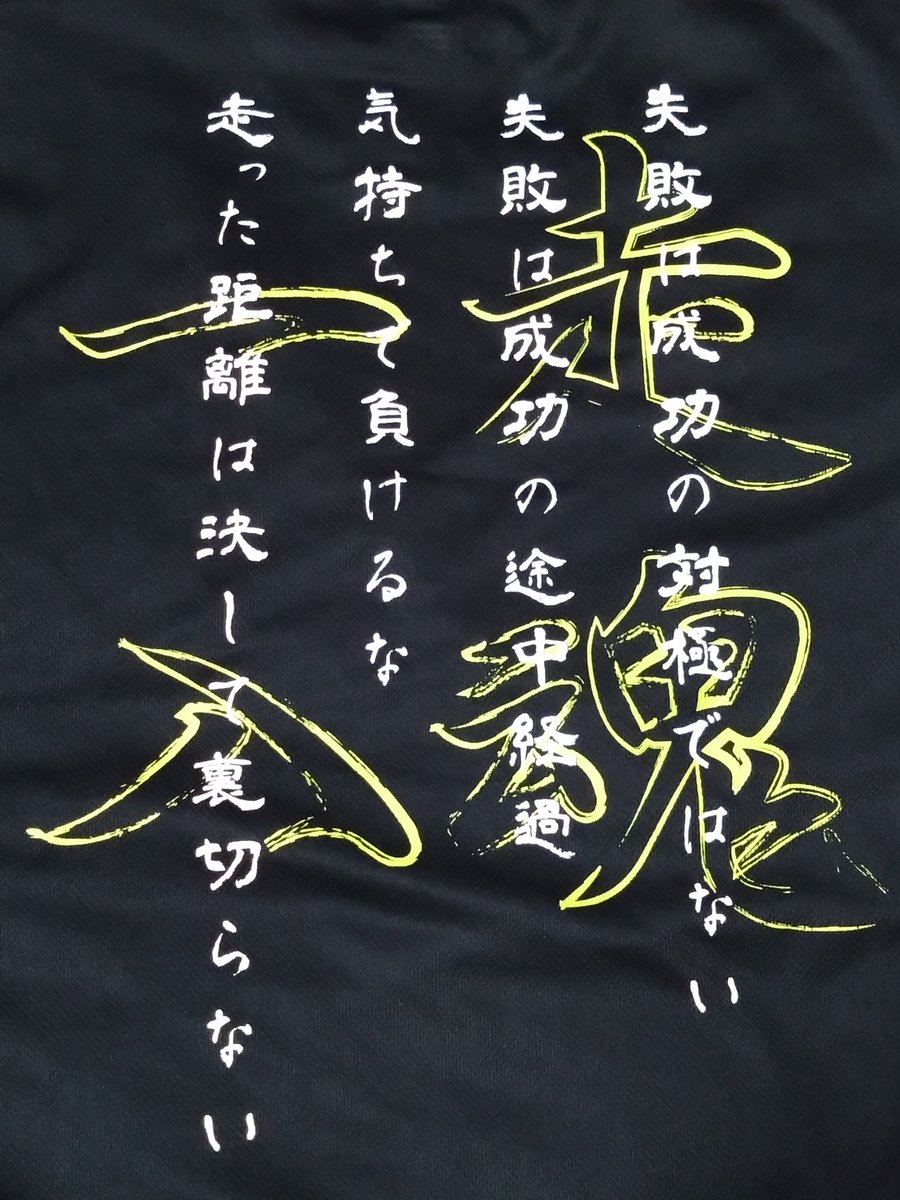 失敗は成功の対極ではない
失敗は成功の途中経過
気持ちで負けるな
走った距離は決して裏切らない
一走
入魂